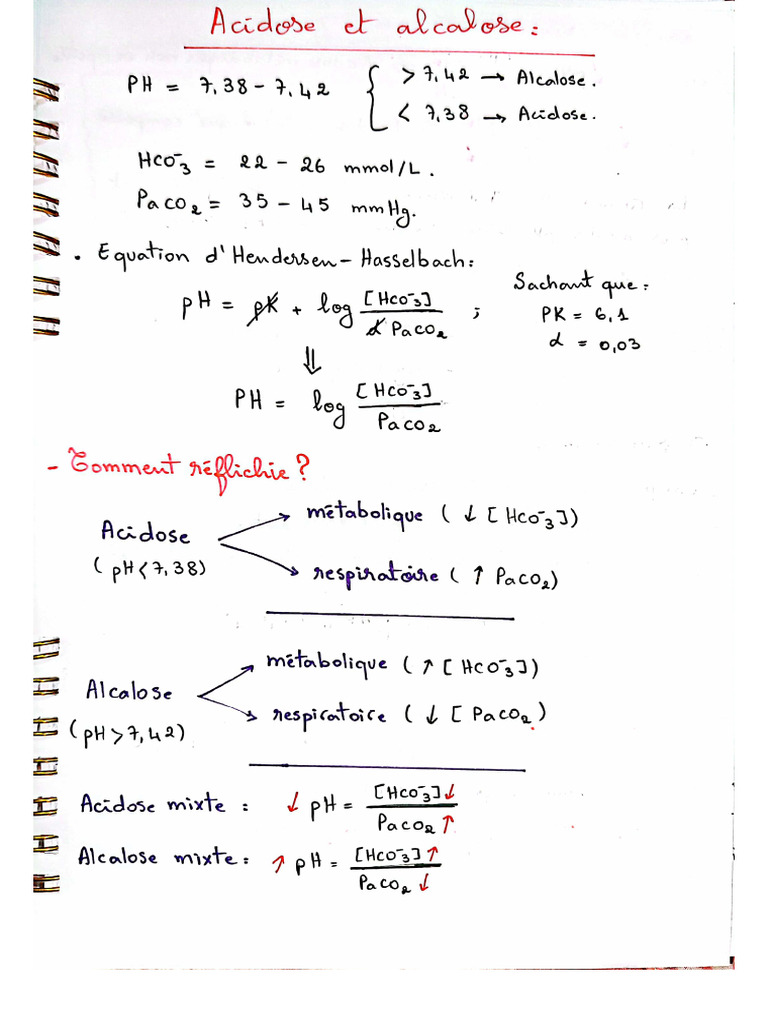 Acidose et alcalose :
PH = 7,38 - 7,42 { > 7,42 → Alcalose.
< 7,38 → Acidose.
HCO₃⁻ = 22 - 26 mmol/L.
PaCO₂ = 35 - 45 mmHg.
. Equation d'Hendersen - Hasselbach :
pH = pK + log [HCO₃⁻] / α PaCO₂ ; Sachant que :
PK = 6,1
α = 0,03
⇓
PH = log [HCO₃⁻] / PaCO₂
- Comment réflichie ?
Acidose → métabolique (↓ [HCO₃⁻])
(pH < 7,38) → respiratoire (↑ PaCO₂)
Alcalose → métabolique (↑ [HCO₃⁻])
(pH > 7,42) → respiratoire (↓ [PaCO₂)
Acidose mixte : ↓ pH = [HCO₃⁻]↓ / PaCO₂ ↑
Alcalose mixte : ↑ pH = [HCO₃⁻] ↑ / PaCO₂ ↓